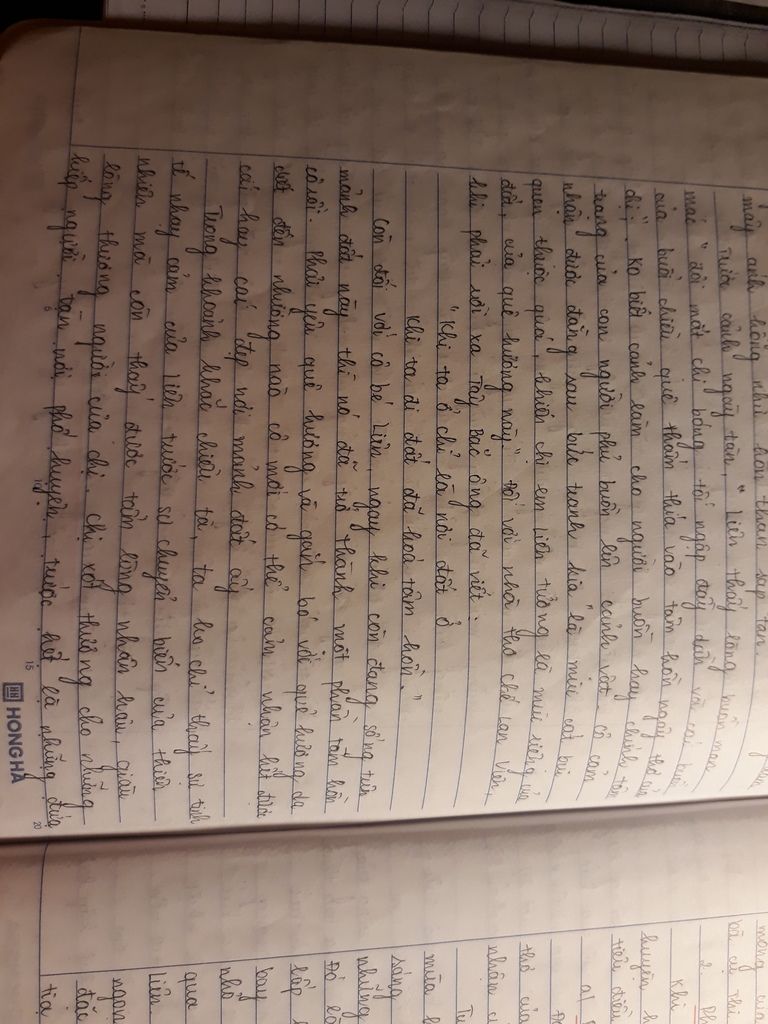 mây ánh hồng như hòn than sắp tàn.
Trước cảnh ngày tàn, "Liên thấy lòng buồn man
mác "đôi mắt chị bóng tối ngập đầy dần và cái buồn
của buổi chiều quê thấm thía vào tâm hồn ngây thơ của
chị". Ko biết cảnh làm cho người buồn hay chính tâm
trạng của con người phủ buồn lên cảnh vật. Cô cảm
nhận được đằng sau bức tranh kia "là mùi cát bụi
quen thuộc quá, khiến chị em Liên tưởng là mùi riêng của
đất, của quê hương này". Đối với nhà thơ Chế Lan Viên,
khi phải rời xa Tây Bắc ông đã viết:
"Khi ta ở chỉ là nơi đất ở
Khi ta đi đất đã hoá tâm hồn."
Còn đối với cô bé Liên, ngay khi còn đang sống trên
mảnh đất này thì nó đã trở thành một phần tâm hồn
cô rồi. Phải yêu quê hương và gắn bó với quê hương da
diết đến nhường nào cô mới có thể cảm nhận hết được
cái hay cái đẹp nơi mảnh đất ấy
Trong khoảnh khắc chiều tà, ta ko chỉ thấy sự tinh
tế nhạy cảm của Liên trước sự chuyển biến của thiên
nhiên mà còn thấy được tấm lòng nhân hậu, giàu
lòng thương người của chị. Chị xót thương cho những
kiếp người tàn nơi phố huyện, trước hết là những đứa
10 15 20
HH HONGHA
mong
bà cụ Thi
2. Ph
Khi
huyện
tiêu điều
a)
thơ của
nhận
Tu
mùa
sáng
những
Đó là
lớp
bay
nhỏ
qua
Liên
ngọn
đặc
tia